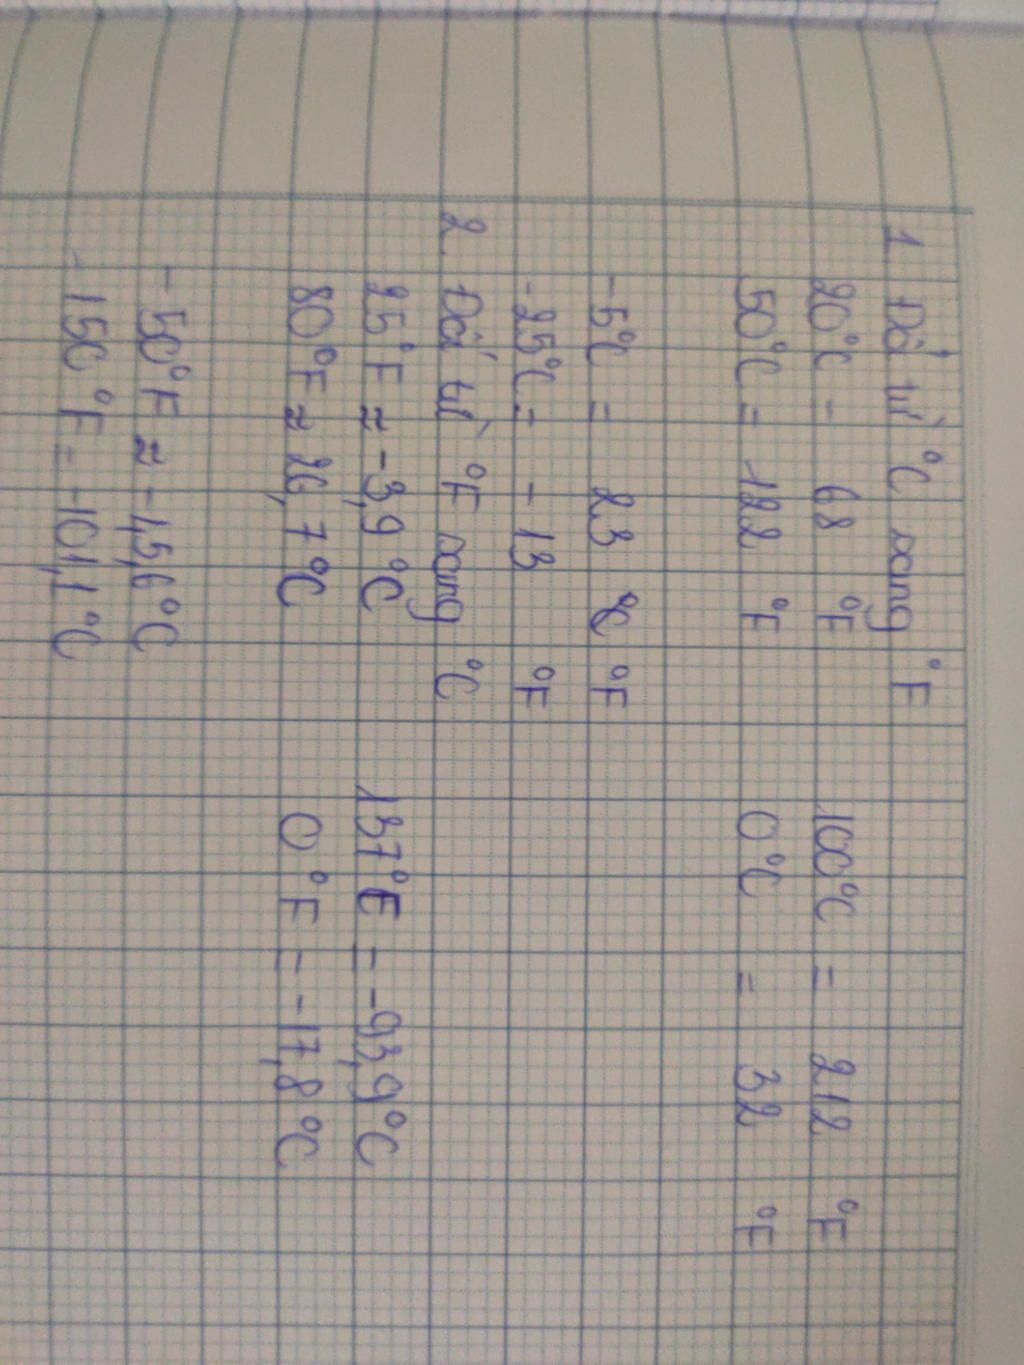 1. Đổi từ °C sang °F
20°C = 68 °F 100°C = 212 °F
50°C = 122 °F 0°C = 32 °F
-5°C = 23 °F
-25°C = -13 °F
2. Đổi từ °F sang °C
25°F ≈ -3,9 °C 137°F = -93,9°C
80°F ≈ 26,7°C 0°F = -17,8°C
-50°F ≈ -45,6°C
-150°F = -101,1°C